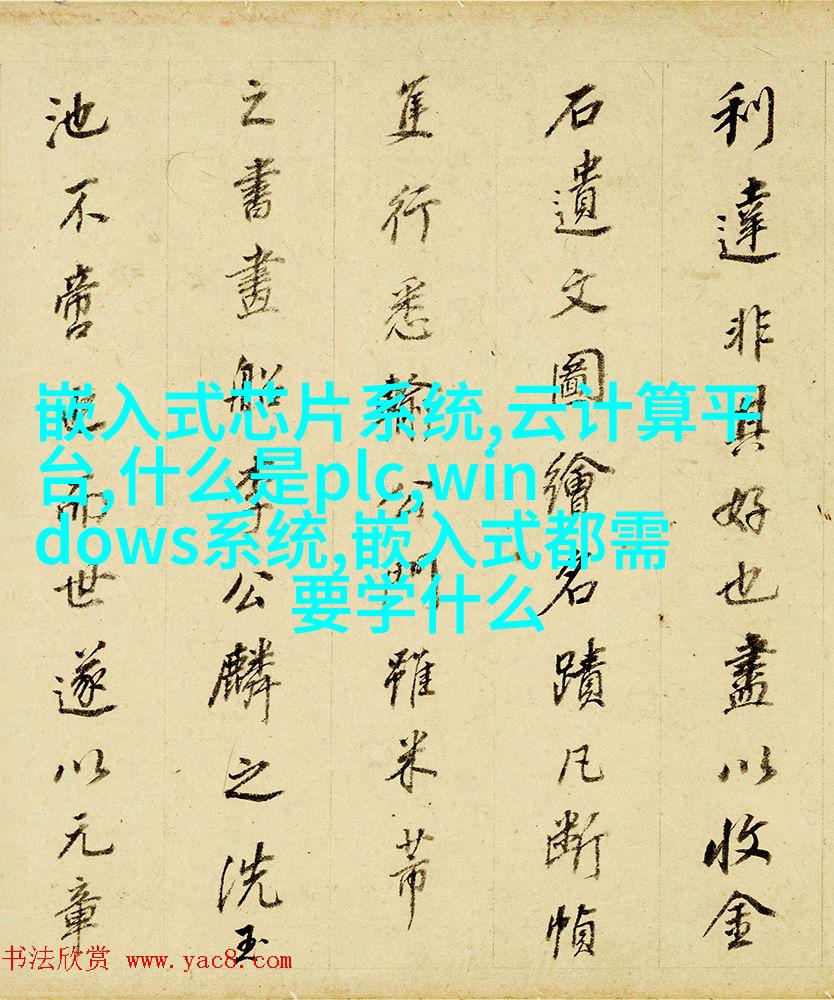 利達非其好也盡以收金
石遺文圖繪名蹟凡斷幀
隻行悉公門雖米芾
之書畫船李公麟之洗玉
池不啻而世遂以元章
嵌入式芯片系统,云计算平
台,什么是plc,win
dows系统,嵌入式都需
要学什么
书法欣赏 www.yac8.com